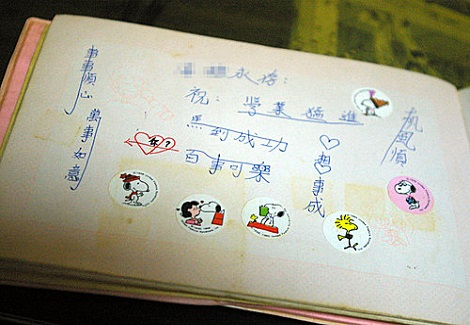 事事順心
萬事如意
祝:學業猛進
馬到成功
百事可樂
想事成
帆風順